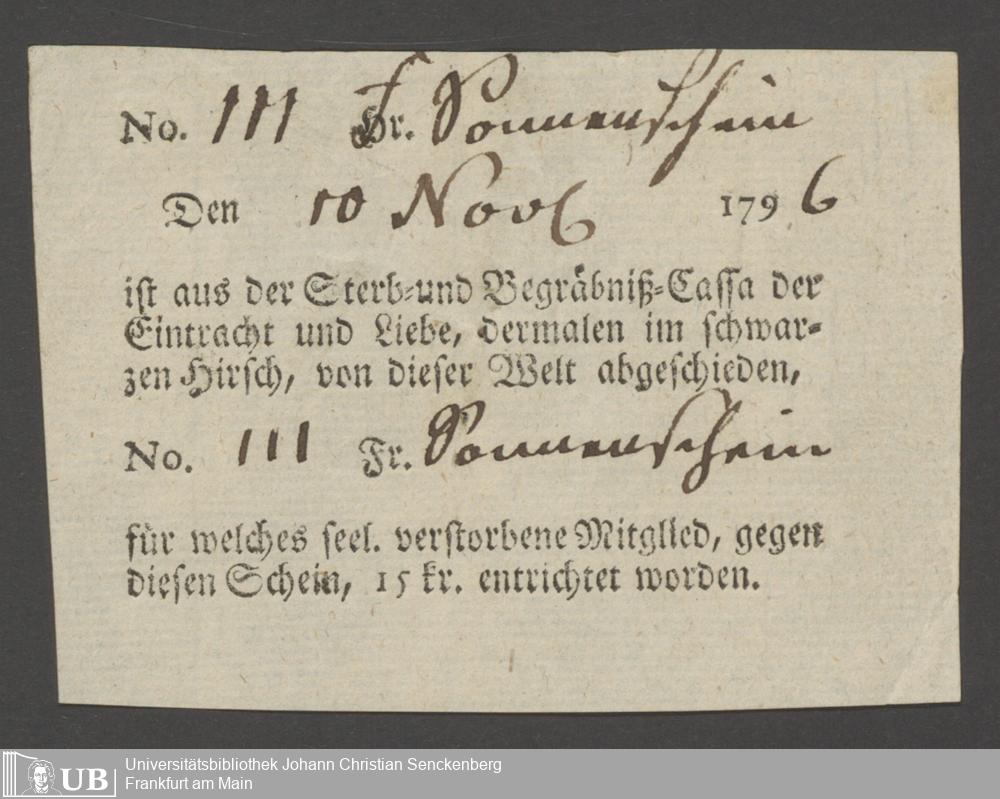 No. 111 Fr. Sonnenschein
Den 10 Novb 1796
ist aus der Sterb-und Begräbniß-Cassa der
Eintracht und Liebe, dermalen im schwar-
zen Hirsch, von dieser Welt abgeschieden,
No. 111 Fr. Sonnenschein
für welches seel. verstorbene Mitglied, gegen
diesen Schein, 15 kr. entrichtet worden.
UB Universitätsbibliothek Johann Christian Senckenberg
Frankfurt am Main